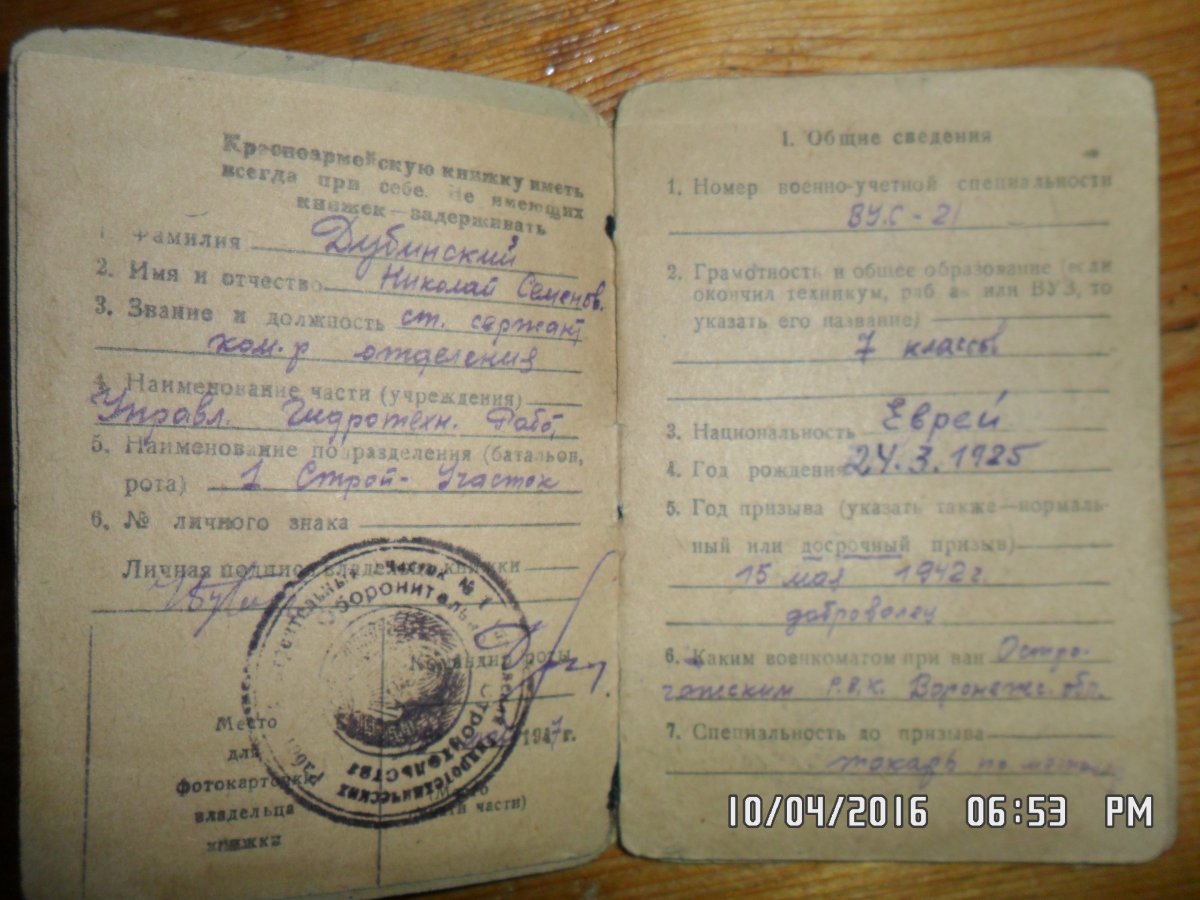 Красноармейскую книжку иметь
всегда при себе. Не имеющих
книжек — задерживать
1. Фамилия Дубинский
2. Имя и отчество Николай Семенов.
3. Звание и должность ст. сержант
ком-р отделения
4. Наименование части (учреждения)
Управл. Гидротехн. Работ
5. Наименование подразделения (батальон,
рота) 1 Строй-Участок
6. № личного знака
Личная подпись владельца книжки
Командир роты
1947 г.
Место
для
фотокарточки
владельца
книжки
(Место
печати части)
Оборонительн
Строительства
Гидротехнических Работ
1. Общие сведения
1. Номер военно-учетной специальности
ВУС-21
2. Грамотность и общее образование (если
окончил техникум, рабфак или ВУЗ, то
указать его название)
7 классов
3. Национальность Еврей
4. Год рождения 24.3.1925
5. Год призыва (указать также — нормаль-
ный или досрочный призыв)
15 мая 1942 г.
доброволец
6. Каким военкоматом призван Остро-
гожским Р.В.К. Воронежс. обл.
7. Специальность до призыва
токарь по металлу
10/04/2016 06:53 PM